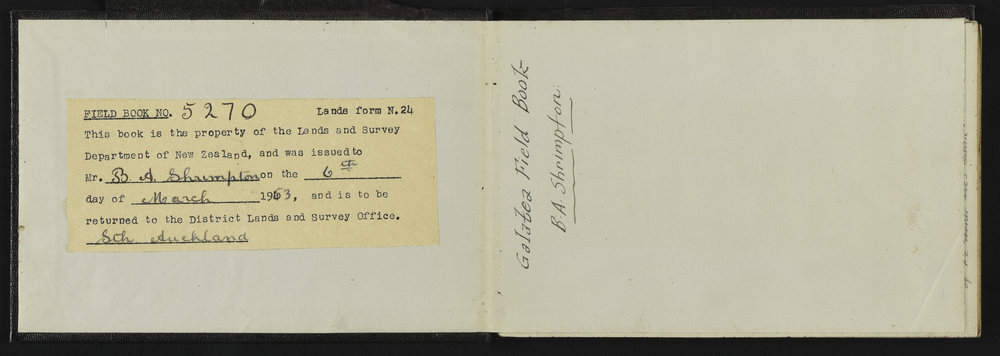 FIELD BOOK NO. 5270 Lands form N.24
This book is the property of the Lands and Survey
Department of New Zealand, and was issued to
Mr. B. A. Shrimpton on the 6th
day of March 1953, and is to be
returned to the District Lands and Survey Office.
Sth Auckland
Galatea Field Book
B.A. Shrimpton.